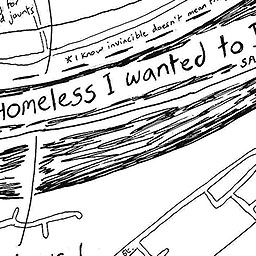 for
jaunts
*I know invincible doesn't mean
Homeless I wanted to
SA